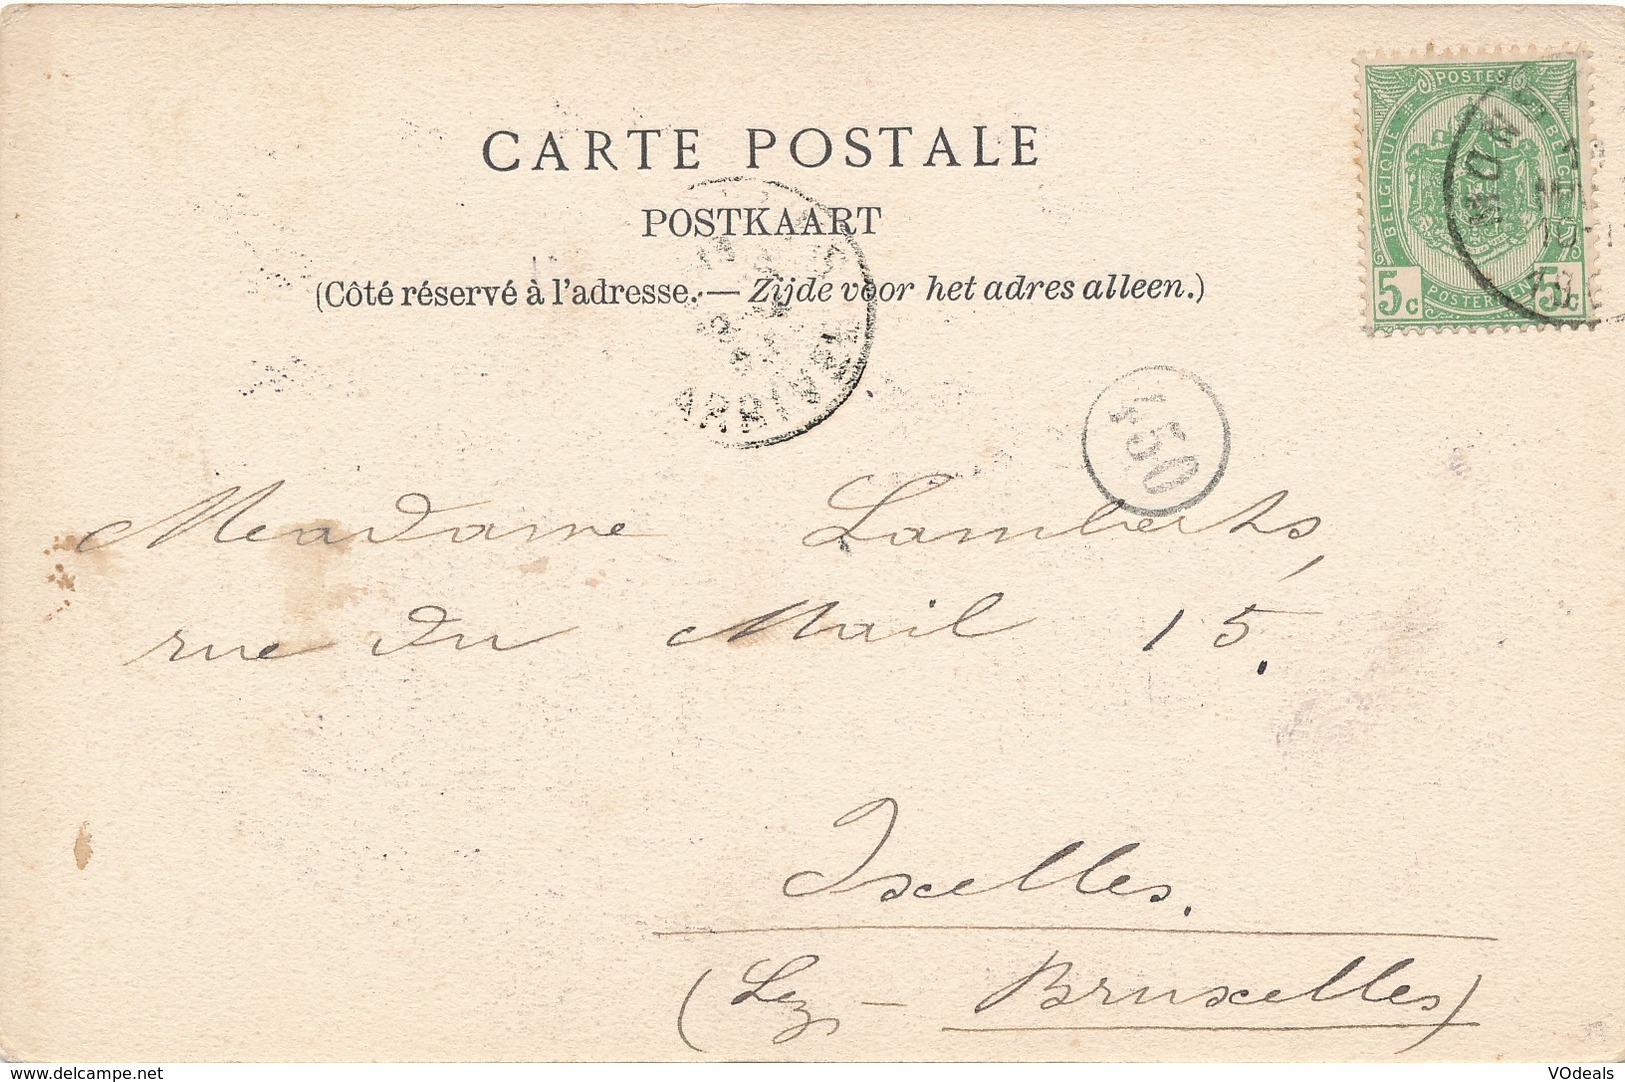 CARTE POSTALE
POSTKAART
(Côté réservé à l'adresse. — Zijde voor het adres alleen.)
POSTES
BELGIQUE
BELGIË
5c POSTERIJEN 5c
MONS
ARRIVÉE
150
Madame Lamberts,
rue du Mail 15.
Ixelles.
(Lez - Bruxelles)
www.delcampe.net
VOdeals